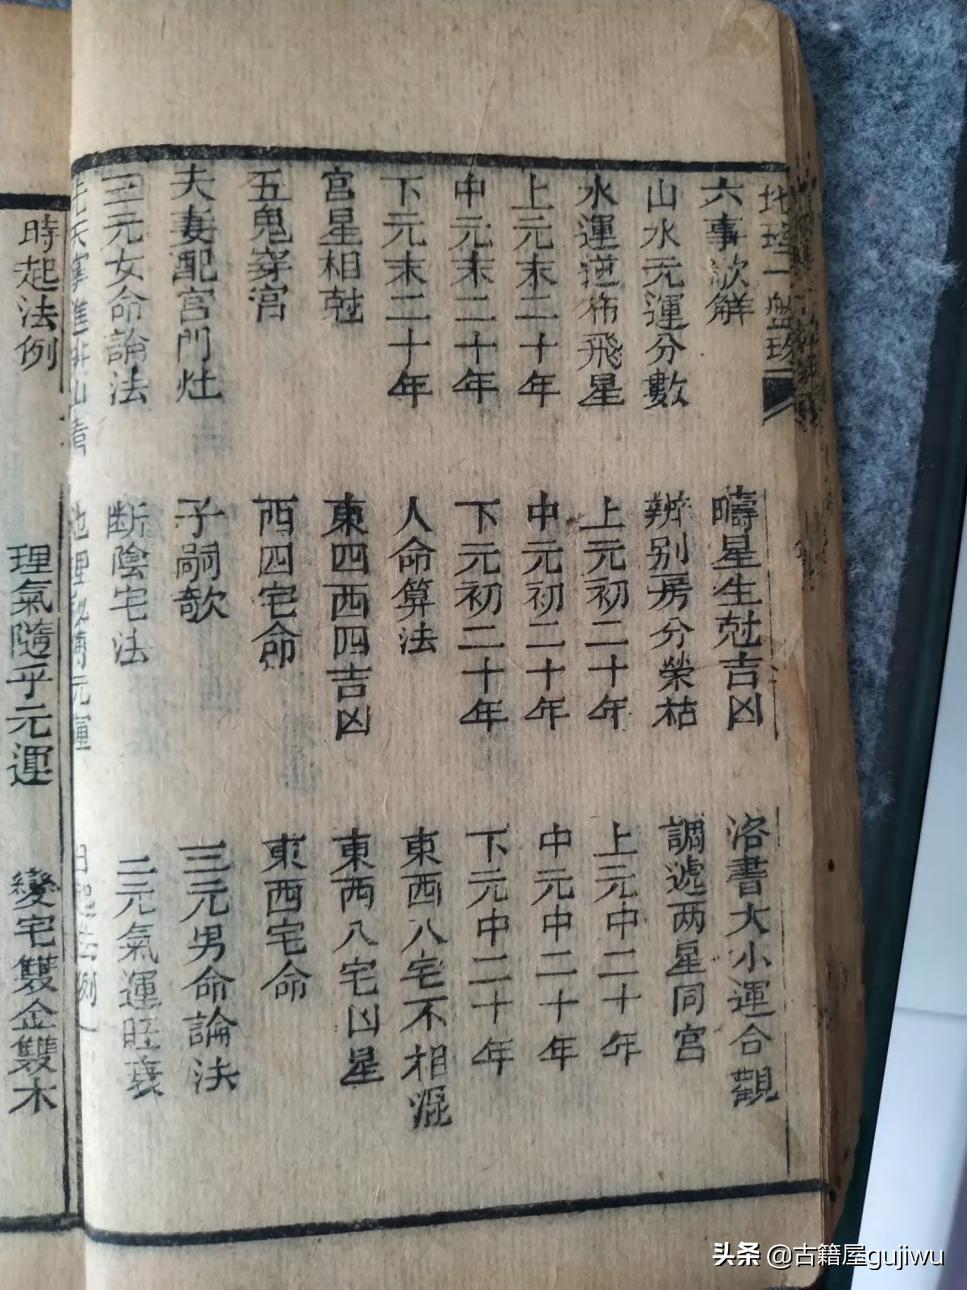 六事欵解　疇星生尅吉凶　洛書大小運合觀
山水元運分數　辨别房分榮枯　調遞两星同宫
水運逆布飛星　上元初二十年　上元中二十年
上元末二十年　中元初二十年　中元中二十年
中元末二十年　下元初二十年　下元中二十年
下元末二十年　人命算法　東西八宅不相混
宫星相尅　東四西四吉凶　東西八宅凶星
五鬼穿宫　西四宅命　東西宅命
夫妻配宫門灶　子嗣歌　三元男命論法
三元女命論法　断陰宅法　二元氣運旺衰
時起法例　理氣隨乎元運　變宅雙金雙木
头条 @古籍屋gujiwu